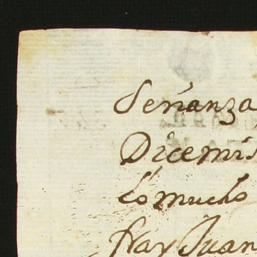 Señanza
Dicemis
lo mucho
fray Juan